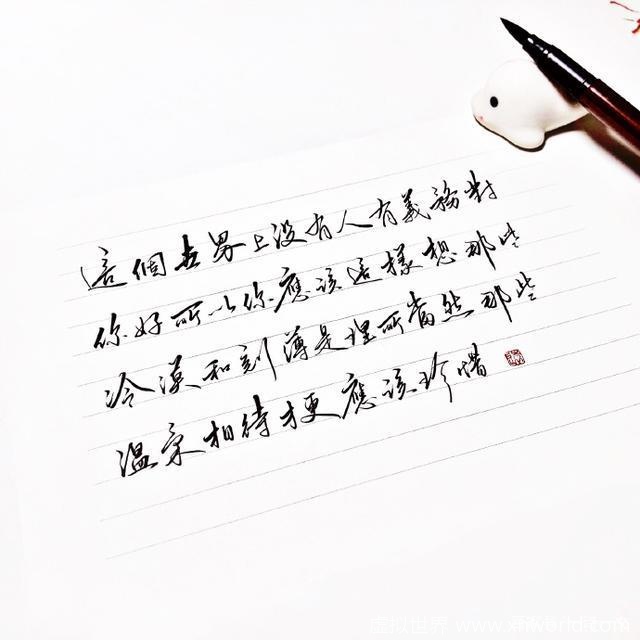 這個世界上没有人有義務對
你好所以你應該這樣想那些
冷漠和刻薄是理所當然那些
温柔相待才更應該珍惜